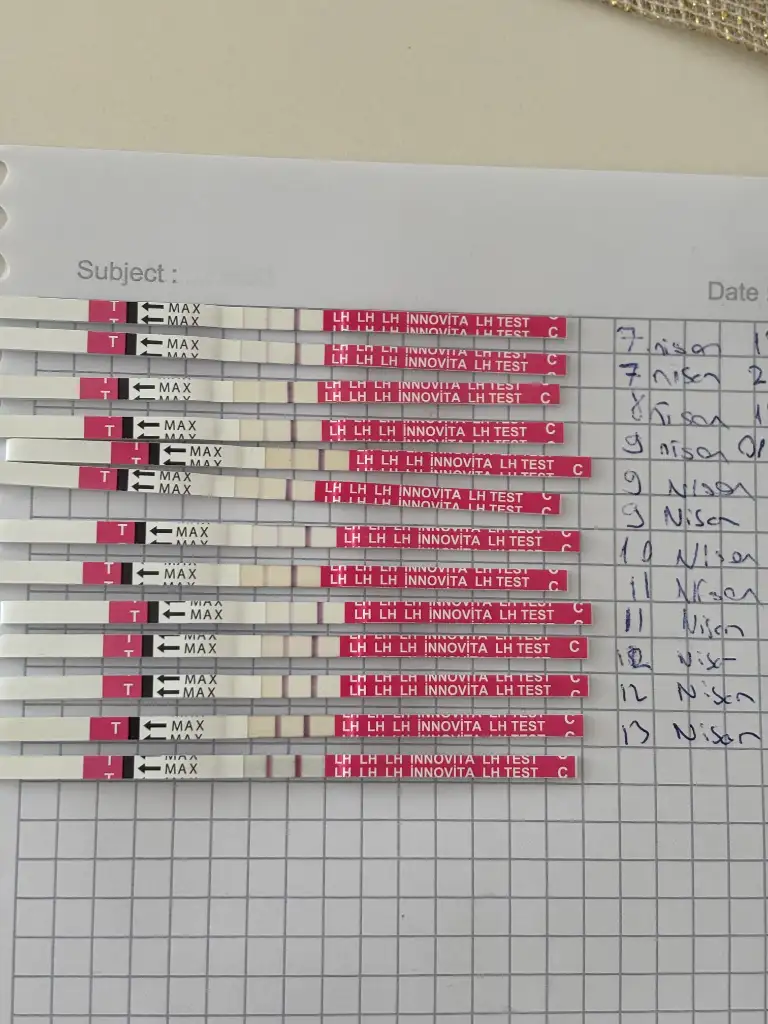 Subject :
Date :
T MAX LH LH LH İNNOVİTA LH TEST C 7 nisan
T MAX LH LH LH İNNOVİTA LH TEST C 7 nisan 2
T MAX LH LH LH İNNOVİTA LH TEST C 8 Nisan
T MAX LH LH LH İNNOVİTA LH TEST C 9 nisan
T MAX LH LH LH İNNOVİTA LH TEST C 9 Nisan
T MAX LH LH LH İNNOVİTA LH TEST C 9 Nisan
T MAX LH LH LH İNNOVİTA LH TEST C 10 Nisan
T MAX LH LH LH İNNOVİTA LH TEST C 11 Nisan
T MAX LH LH LH İNNOVİTA LH TEST C 11 Nisan
T MAX LH LH LH İNNOVİTA LH TEST C 12 Nisan
T MAX LH LH LH İNNOVİTA LH TEST C 12 Nisan
T MAX LH LH LH İNNOVİTA LH TEST C 13 Nisan
T MAX LH LH LH İNNOVİTA LH TEST C